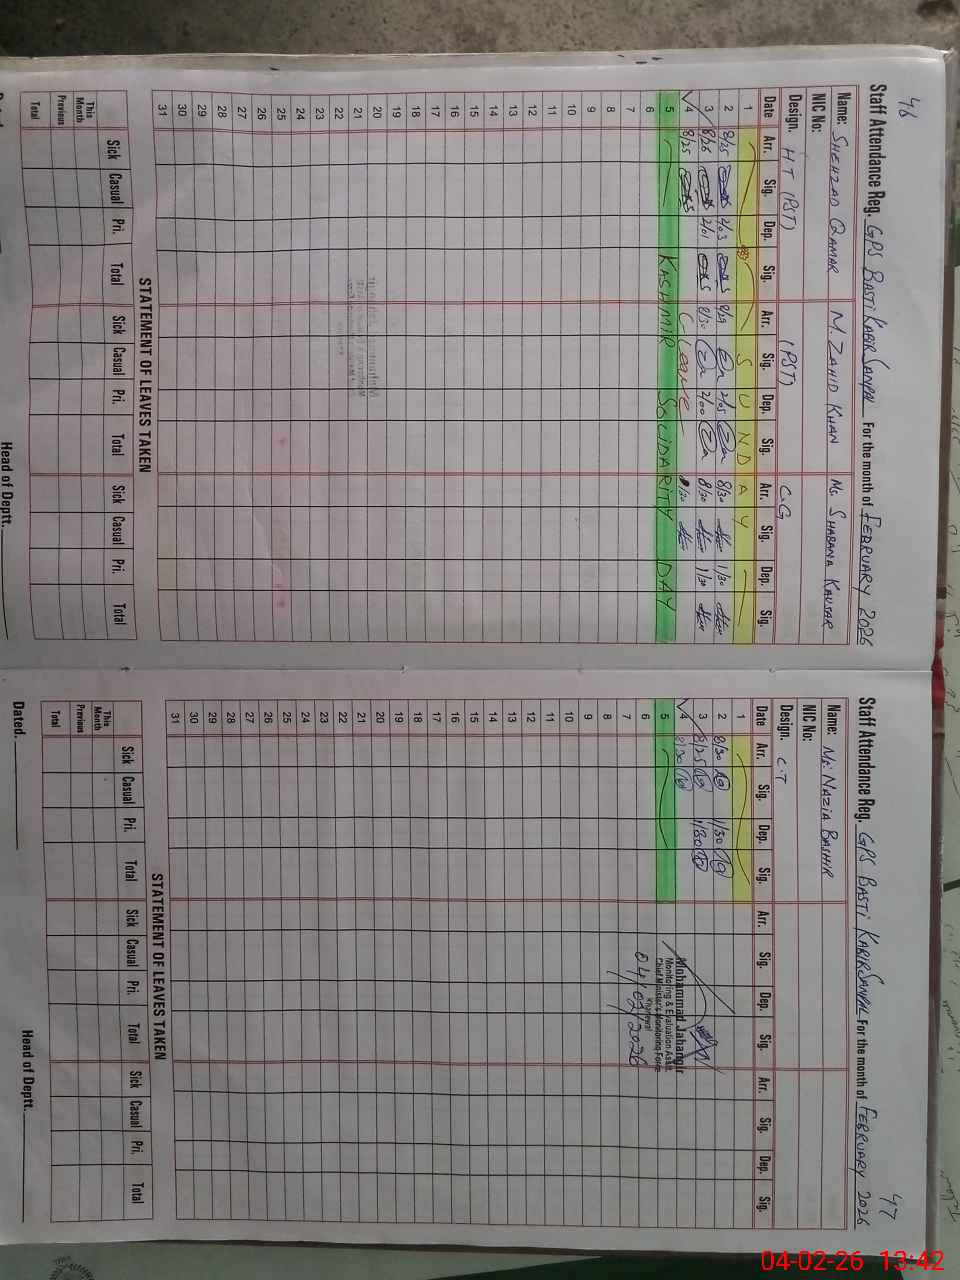 46
Staff Attendance Reg. GPS BASTI KABIR SANPAL For the month of FEBRUARY 2026
Name: SHEHZAD QAMAR M. ZAHID KHAN Ms SHABANA KAUSAR
NIC No:
Design. HT (PST) (PST) C.G
Date Arr. Sig. Dep. Sig. Arr. Sig. Dep. Sig. Arr. Sig. Dep. Sig.
1 SUNDAY
2 8/25 2/03 8/29 2/05 8/30 1/30
3 8/26 2/01 8/30 2/00 8/30 1/30
4 8/25 C-Leave 8/30
5 KASHMIR SOLIDARITY DAY
6
7
8
9
10
11
12
13
14
15
16
17
18
19
20
21
22
23
24
25
26
27
28
29
30
31
STATEMENT OF LEAVES TAKEN
Sick Casual Pri. Total Sick Casual Pri. Total Sick Casual Pri. Total
This Month
Previous
Total
Head of Deptt.
47
Staff Attendance Reg. GPS BASTI KABIR SANPAL For the month of FEBRUARY 2026
Name: Ms: NAZIA BASHIR
NIC No:
Design. C.T
Date Arr. Sig. Dep. Sig. Arr. Sig. Dep. Sig. Arr. Sig. Dep. Sig.
1
2 8/30 1/30
3 8/25 1/30
4 8/30
5
6
7
8
9
10
11
12
13
14
15
16
17
18
19
20
21
22
23
24
25
26
27
28
29
30
31
Mohammad Jahangir
Monitoring & Evaluation Asstt.
Chief Minister's Monitoring Force
Khanewal
04/02/2026
STATEMENT OF LEAVES TAKEN
Sick Casual Pri. Total Sick Casual Pri. Total Sick Casual Pri. Total
This Month
Previous
Total
Dated.
Head of Deptt.
04-02-26 13:42